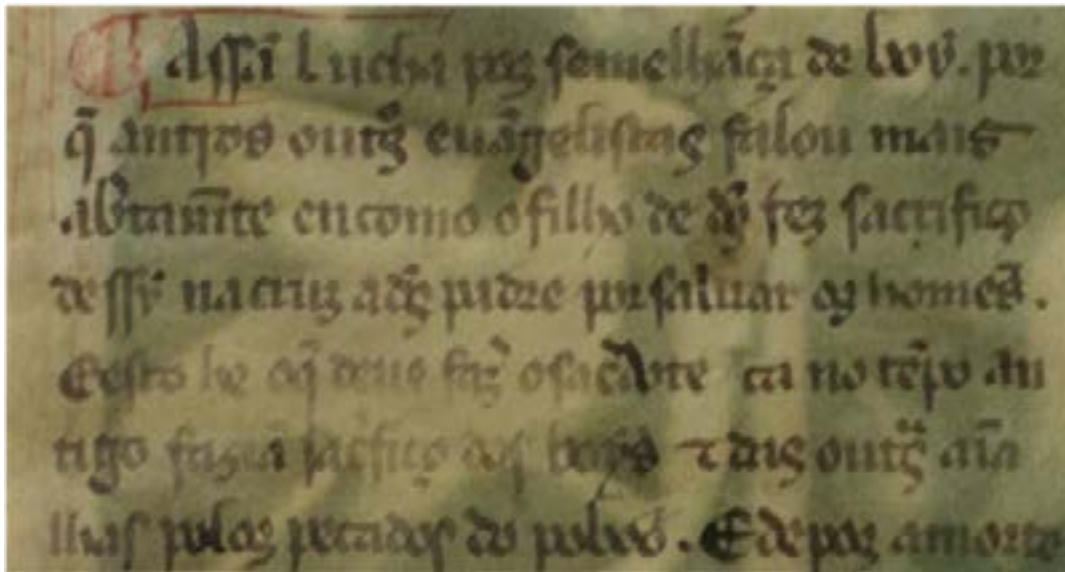 Assi Lucha por semellãça de boy. por
q̃ antros outrs euãgelistas falou mais
abtamẽte encomo o filho de ds fez sacrifiço
dessy na cruz a ds padre por saluar os homẽs.
E esto he o q̃ deue faz o saçdote ca no tẽpo an
tigo faziã sacfiço dos boys ⁊ das outrs ãia
lhas polos pecados do poboo. E depos a morte